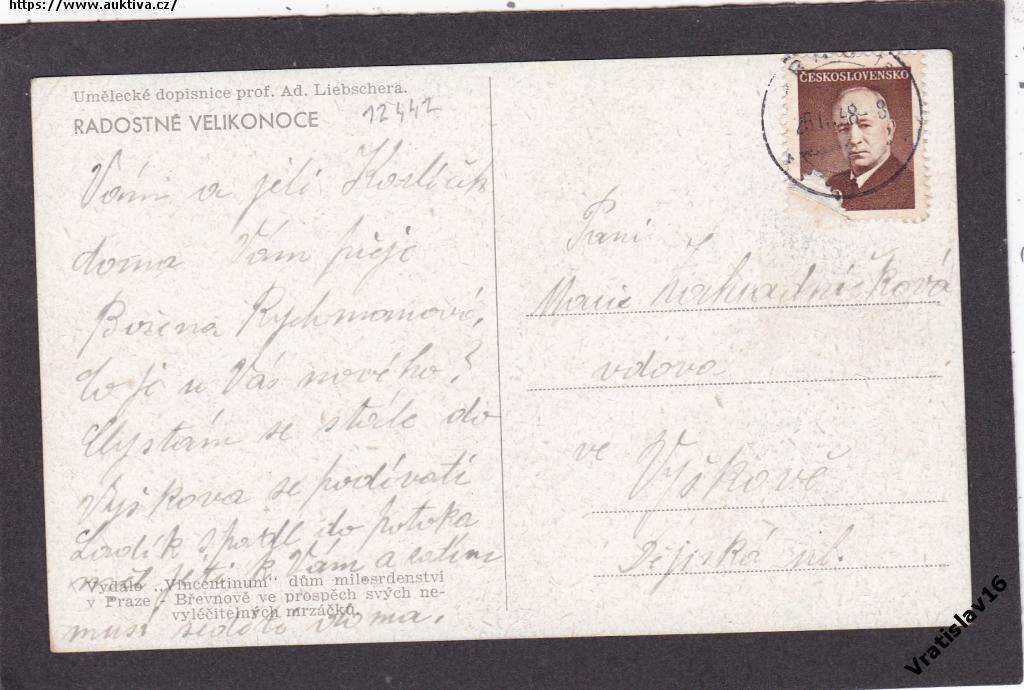 https://www.auktiva.cz/
Umělecké dopisnice prof. Ad. Liebschera.
12442
RADOSTNÉ VELIKONOCE
Vám a jeli
doma Vám přeje
Božena Rychmanová,
Co je u Vás nového?
Chystám se stále do
Vyškova se podívati
Ladík spadl do potoka
měl jeti k Vám a zatím
musí seděti doma.
Vydalo „Vincentinum" dům milosrdenství
v Praze - Břevnově ve prospěch svých ne-
vyléčitelných mrzáčků.
ČESKOSLOVENSKO
48
Paní
Marie Nahradníčková
vdova
ve Vyškově
Dějická ul.
Vratislav16